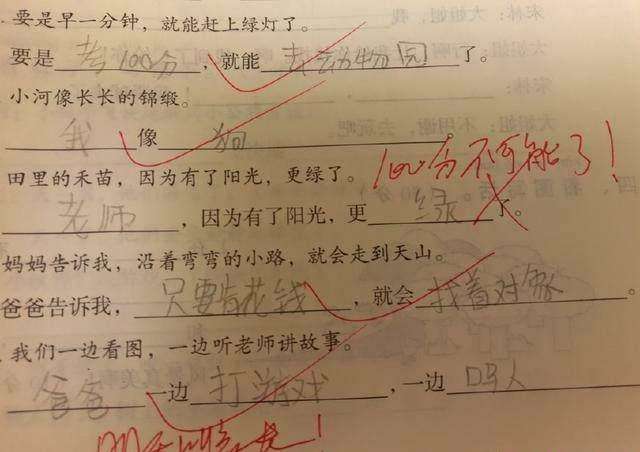 要是早一分钟，就能赶上绿灯了。
要是 考100分 ，就能 去动物园 了。
小河像长长的锦缎。
我 像 狗
100分不可能了！
田里的禾苗，因为有了阳光，更绿了。
老师 ，因为有了阳光，更 绿 了。
妈妈告诉我，沿着弯弯的小路，就会走到天山。
爸爸告诉我， 只要有花钱 ，就会 找着对象 。
我们一边看图，一边听老师讲故事。
爸爸 一边 打游戏 ，一边 骂人
明天